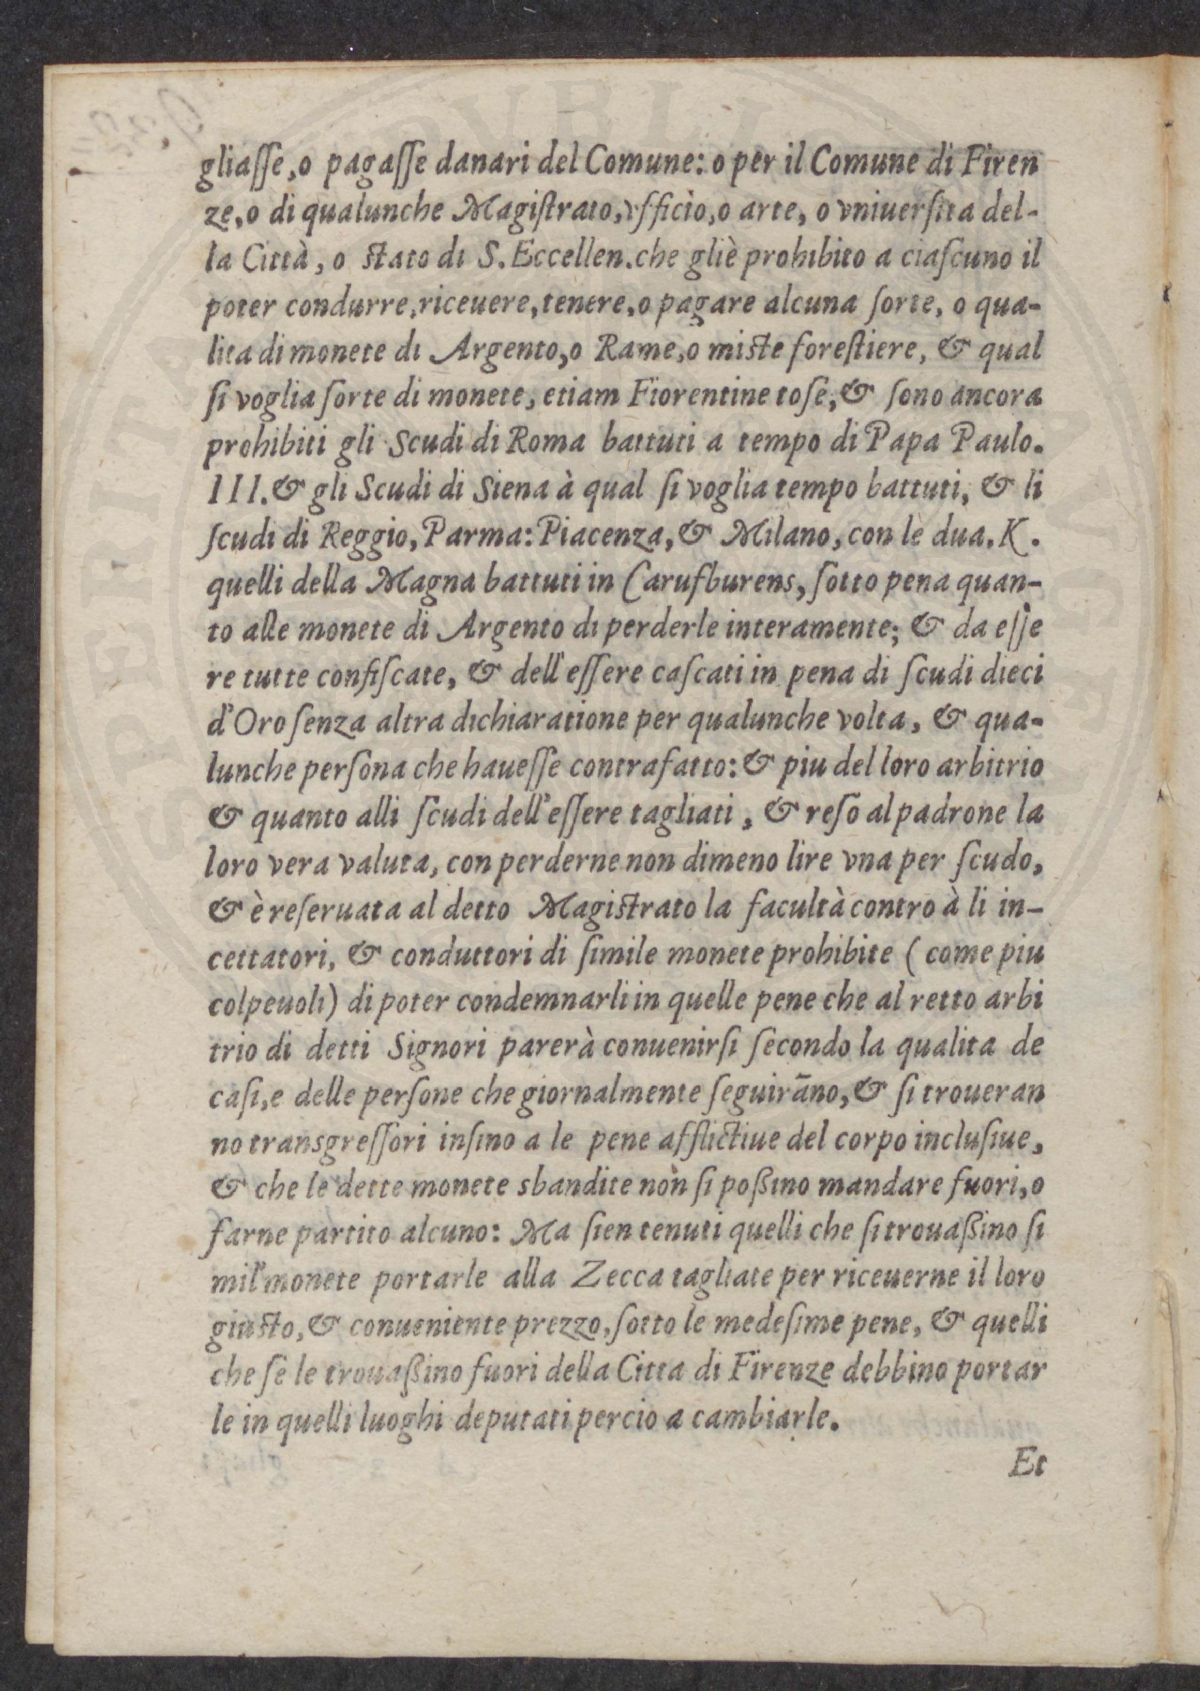 gliaſſe, o pagaſſe danari del Comune: o per il Comune di Firen
ze, o di qualunche Magiſtrato, vfficio, o arte, o vniuerſita del-
la Città, o ſtato di S. Eccellen. che gliè prohibito a ciaſcuno il
poter condurre, riceuere, tenere, o pagare alcuna ſorte, o qua-
lita di monete di Argento, o Rame, o miſte foreſtiere, & qual
ſi voglia ſorte di monete, etiam Fiorentine toſe, & ſono ancora
prohibiti gli Scudi di Roma battuti a tempo di Papa Paulo.
III. & gli Scudi di Siena à qual ſi voglia tempo battuti, & li
ſcudi di Reggio, Parma: Piacenza, & Milano, con le dua. K.
quelli della Magna battuti in Carufburens, ſotto pena quan-
to alle monete di Argento di perderle interamente; & da eſſe
re tutte confiſcate, & dell'eſſere caſcati in pena di ſcudi dieci
d'Oro ſenza altra dichiaratione per qualunche volta, & qua-
lunche perſona che haueſſe contrafatto: & piu del loro arbitrio
& quanto alli ſcudi dell'eſſere tagliati, & reſo al padrone la
loro vera valuta, con perderne non dimeno lire vna per ſcudo,
& è reſeruata al detto Magiſtrato la facultà contro à li in-
cettatori, & conduttori di ſimile monete prohibite ( come piu
colpeuoli) di poter condemnarli in quelle pene che al retto arbi
trio di detti Signori parerà conuenirſi ſecondo la qualita de
caſi, e delle perſone che giornalmente ſeguirāno, & ſi troueran
no transgreſſori inſino a le pene afflictiue del corpo incluſiue,
& che le dette monete sbandite non ſi poßino mandare fuori, o
farne partito alcuno: Ma ſien tenuti quelli che ſi trouaßino ſi
mil'monete portarle alla Zecca tagliate per riceuerne il loro
giuſto, & conueniente prezzo, ſotto le medeſime pene, & quelli
che ſe le trouaßino fuori della Citta di Firenze debbino portar
le in quelli luoghi deputati percio a cambiarle.
Et